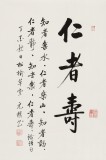 仁者壽
知者樂水仁者樂山知者動
仁者靜知者樂仁者壽